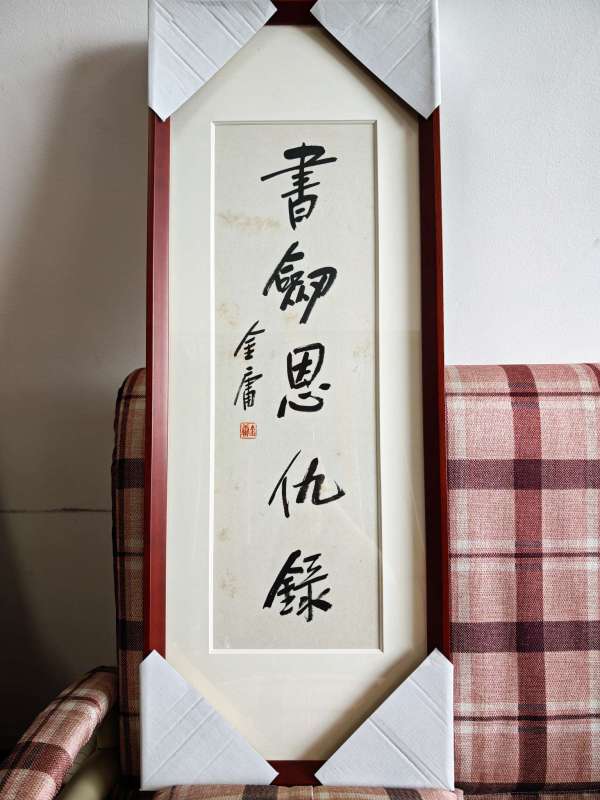 書劍恩仇錄
金庸